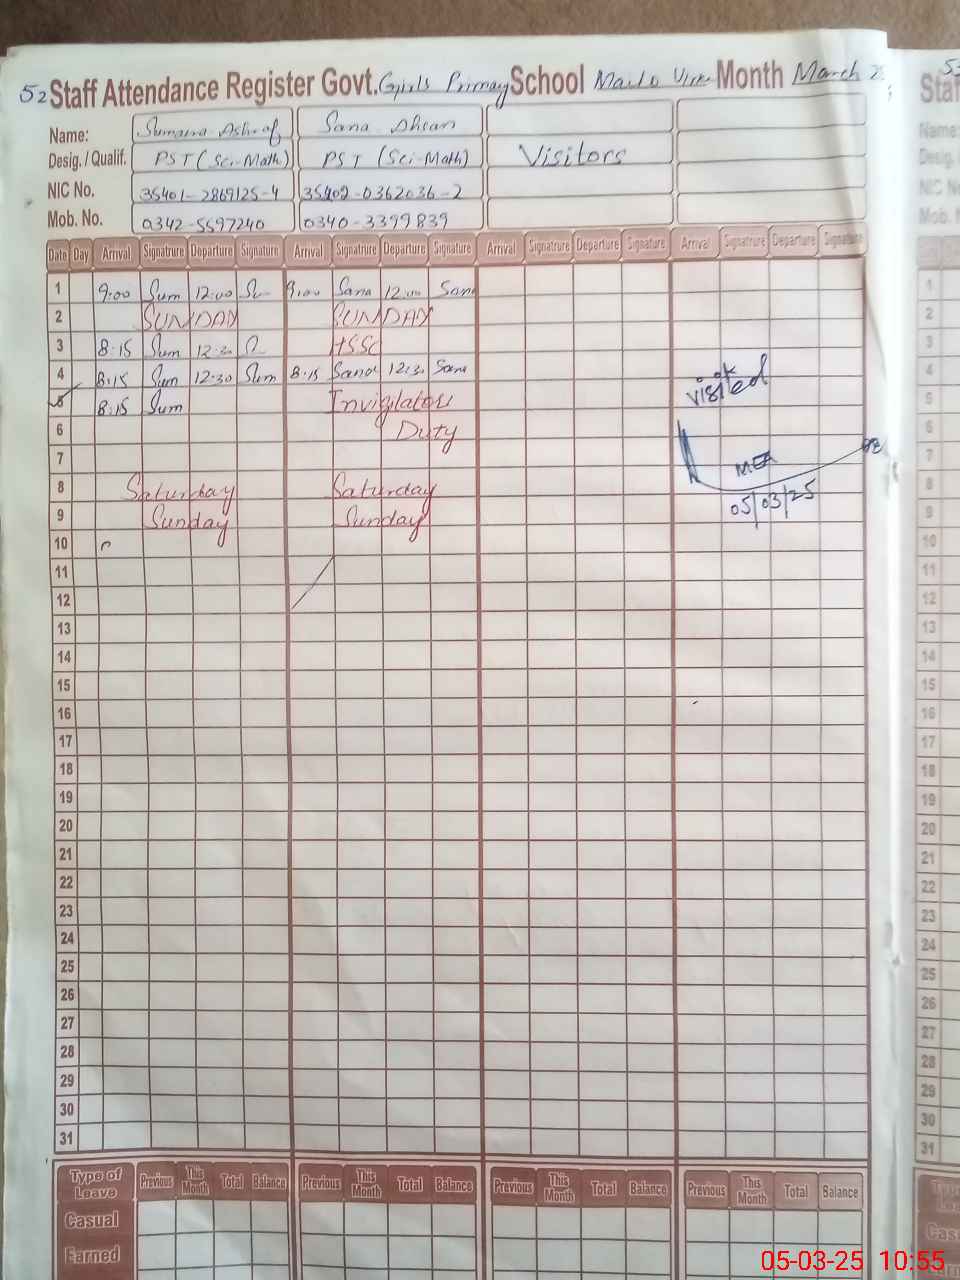 52 Staff Attendance Register Govt. Girls Primary School Mailo Virk Month March 2
Name: Sumaira Ashraf Sana Ahsan
Desig. / Qualif. PST (Sci-Math) PST (Sci-Math) Visitors
NIC No. 35401-2869125-4 35402-0362036-2
Mob. No. 0342-5597240 0340-3399839
Date Day Arrival Signatrure Departure Signature Arrival Signatrure Departure Signature Arrival Signatrure Departure Signature Arrival Signatrure Departure Signature
1 9:00 Sum 12:00 Su 9:00 Sana 12:00 Sana 1
2 SUNDAY SUNDAY 2
3 8:15 Sum 12:30 HSSC 3
4 8:15 Sum 12:30 Sum 8:15 Sana 12:30 Sana 4
5 8:15 Sum Invigilators visited 5
6 Duty 6
7 MEA 7
8 Saturday Saturday 8
9 Sunday Sunday 05/03/25 9
10 10
11 11
12 12
13 13
14 14
15 15
16 16
17 17
18 18
19 19
20 20
21 21
22 22
23 23
24 24
25 25
26 26
27 27
28 28
29 29
30 30
31 31
Type of Leave Previous This Month Total Balance Previous This Month Total Balance Previous This Month Total Balance Previous This Month Total Balance
Casual
Earned
05-03-25 10:55